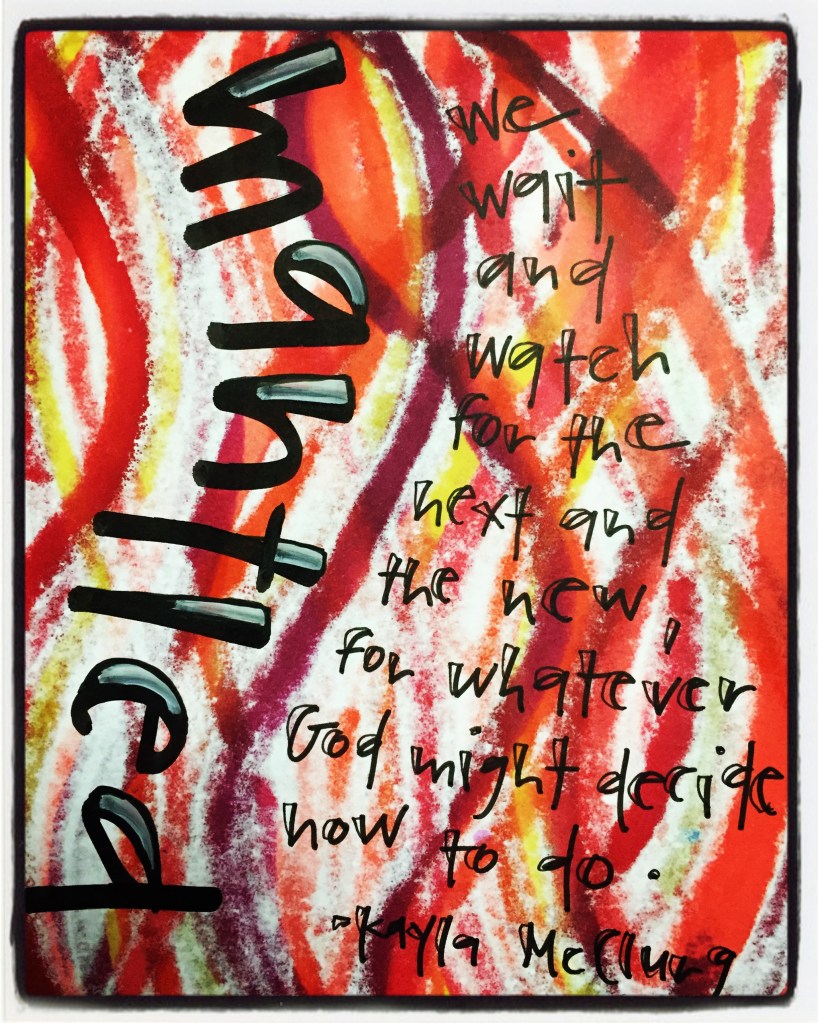 mantled
we
wait
and
watch
for the
next and
the new,
for whatever
God might decide
now to do.
-Kayla McClurg